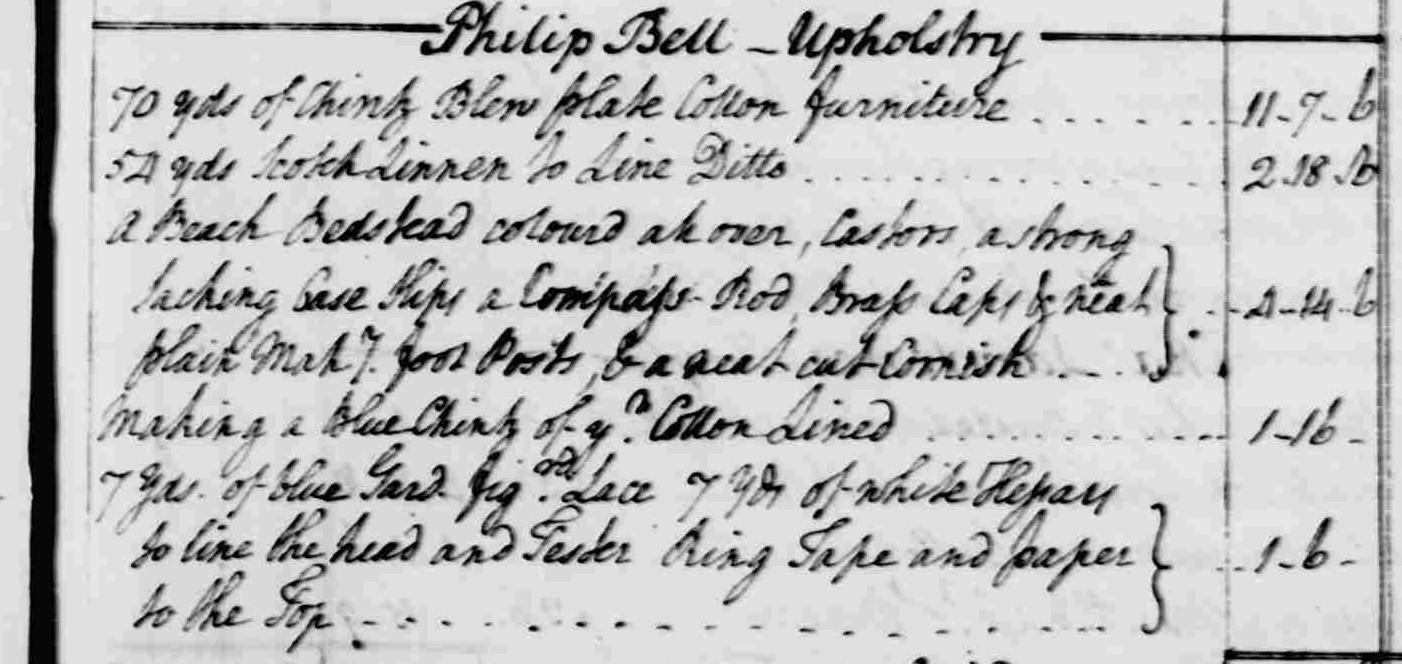 Philip Bell - Upholstry
70 yds of Chintz Blew plate Cotton furniture . . . . . . 11-7-6
54 yds Scotch Linnen to Line Ditto . . . . . . . . . . . 2.18.6
A Beach Bedstead colourd all over, Castors, a strong
Sacking Case Hips a Compass Rod, Brass Caps & neat
plain Mahy. foot Posts, & a neat cut Cornish . . . 4-14-6
Making a Blue Chintz of ye. Cotton Lined . . . . . . . . 1-16-
7 Yds. of blue Gard figrd. Lace 7 Yds of white
to line the head and Tester Ring Tape and paper 1-6-
to the Top . . . . . . . . . . . . . . . .